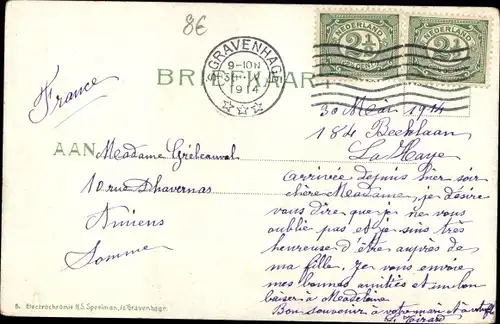 8€
France
'S GRAVENHAGE
9-10N
1914
NEDERLAND
2½
NEDERLAND
2½
BRIEFKAART
30 Mai 1914
184 Beeklaan
La Haye
AAN
Madame Gribeauval
10 rue Dhavernas
Amiens
Somme
arrivée depuis hier soir
chère Madame, je désire
vous dire que je ne vous
oublie pas et je suis très
heureuse d'être auprès de
ma fille. Je vous envoie
mes bonnes amitiés et un bon
baiser à Madeleine
Bon souvenir à votre mari
Electrochromie H.S. Speelman, 's Gravenhage.